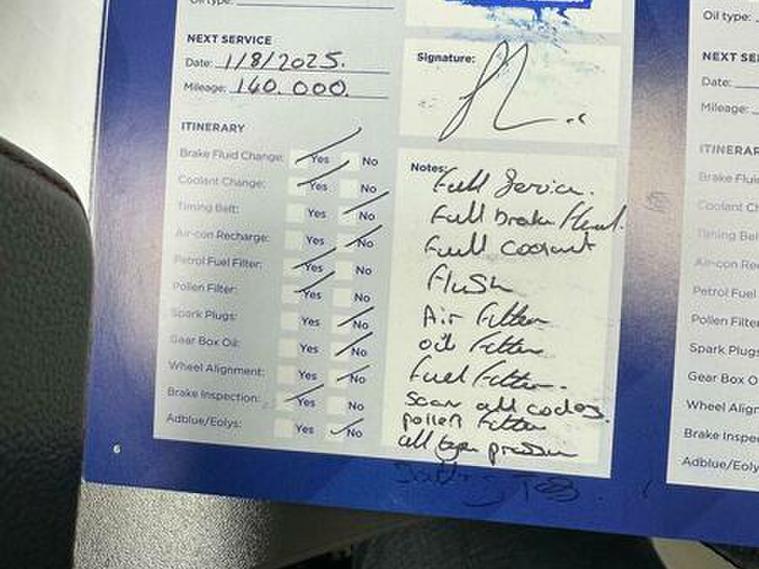 Oil type:
NEXT SERVICE
Date: 1/8/2025.
Mileage: 140.000.
ITINERARY
Brake Fluid Change: Yes No
Coolant Change: Yes No
Timing Belt: Yes No
Air-con Recharge: Yes No
Petrol Fuel Filter: Yes No
Pollen Filter: Yes No
Spark Plugs: Yes No
Gear Box Oil: Yes No
Wheel Alignment: Yes No
Brake Inspection: Yes No
Adblue/Eolys: Yes No
6
Signature:
Notes:
Full Service.
Full brake
Full coolant
flush
Air Filter
oil Filter
Fuel Filter.
Scan all codes.
pollen Filter
all tyre pressure
Oil type:
NEXT SE
Date:
Mileage:
ITINERAR
Brake Fluid
Coolant Ch
Timing Belt
Air-con Re
Petrol Fuel
Pollen Filter
Spark Plugs
Gear Box O
Wheel Align
Brake Inspe
Adblue/Eoly